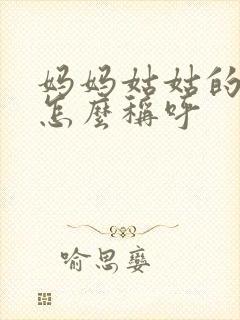 妈妈姑姑的
怎麼稱呼
喻思孌